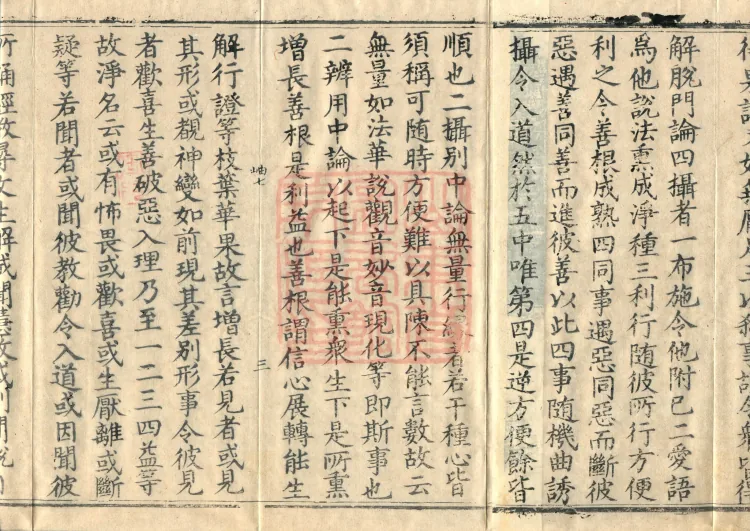 解脫門論四攝者一布施令他附已二愛語
爲他說法熏成淨種三利行随彼所行方便
利之令善根成熟四同事遇惡同惡而斷彼
惡遇善同善而進彼善以此四事随機曲誘
攝令入道然於五中唯第四是逆方便餘皆
順也二攝別中論無量行緣者若干種心皆
須稱可随時方便難以具陳不能言數故云
無量如法華說觀音妙音現化等即斯事也
二辨用中論以起下是能熏衆生下是所熏
增長善根是利益也善根謂信心展轉能生
三
解行證等枝葉華果故言增長若見者或見
其形或覩神變如前現其差别形事令彼見
者歡喜生善破惡入理乃至一二三四益等
故淨名云或有怖畏或歡喜或生厭離或斷
疑等若聞者或聞彼教勸令入道或因聞彼